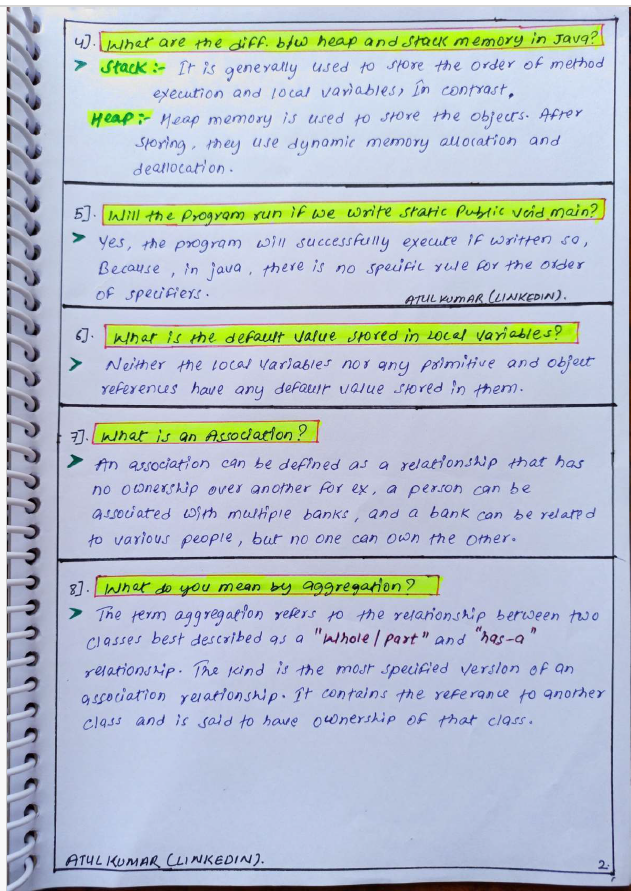 4]. What are the diff. b/w heap and stack memory in Java?
➤ Stack :- It is generally used to store the order of method
execution and local variables, In contrast,
Heap :- Heap memory is used to store the objects. After
storing, they use dynamic memory allocation and
deallocation.
5]. Will the Program run if we write static Public void main?
➤ Yes, the program will successfully execute if written so,
Because, in java, there is no specific rule for the order
of specifiers.
ATUL KUMAR (LINKEDIN).
6]. What is the default value stored in Local variables?
➤ Neither the Local Variables nor any primitive and object
references have any default value stored in them.
7]. What is an Association?
➤ An association can be defined as a relationship that has
no ownership over another for ex, a person can be
associated with multiple banks, and a bank can be related
to various people, but no one can own the other.
8]. What do you mean by aggregation?
➤ The term aggregation refers to the relationship between two
classes best described as a "Whole/part" and "has-a"
relationship. The kind is the most specified version of an
association relationship. It contains the referance to another
class and is said to have ownership of that class.
ATUL KUMAR (LINKEDIN).
2.